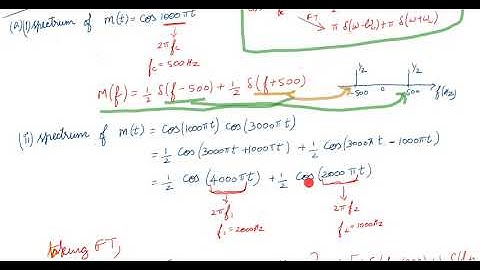 (A)(i) spectrum of m(t) = cos 1000πt
2πfc
fc = 500Hz
FT
π δ(ω-ω0) + π δ(ω+ω0)
M(f) = 1/2 δ(f-500) + 1/2 δ(f+500)
1/2 1/2
-500 0 500 f(Hz)
(ii) spectrum of m(t) = cos(1000πt) cos(3000πt)
= 1/2 cos(3000πt+1000πt) + 1/2 cos(3000πt-1000πt)
= 1/2 cos(4000πt) + 1/2 cos(2000πt)
2πf1 2πf2
f1 = 2000Hz f2 = 1000Hz
taking FT,